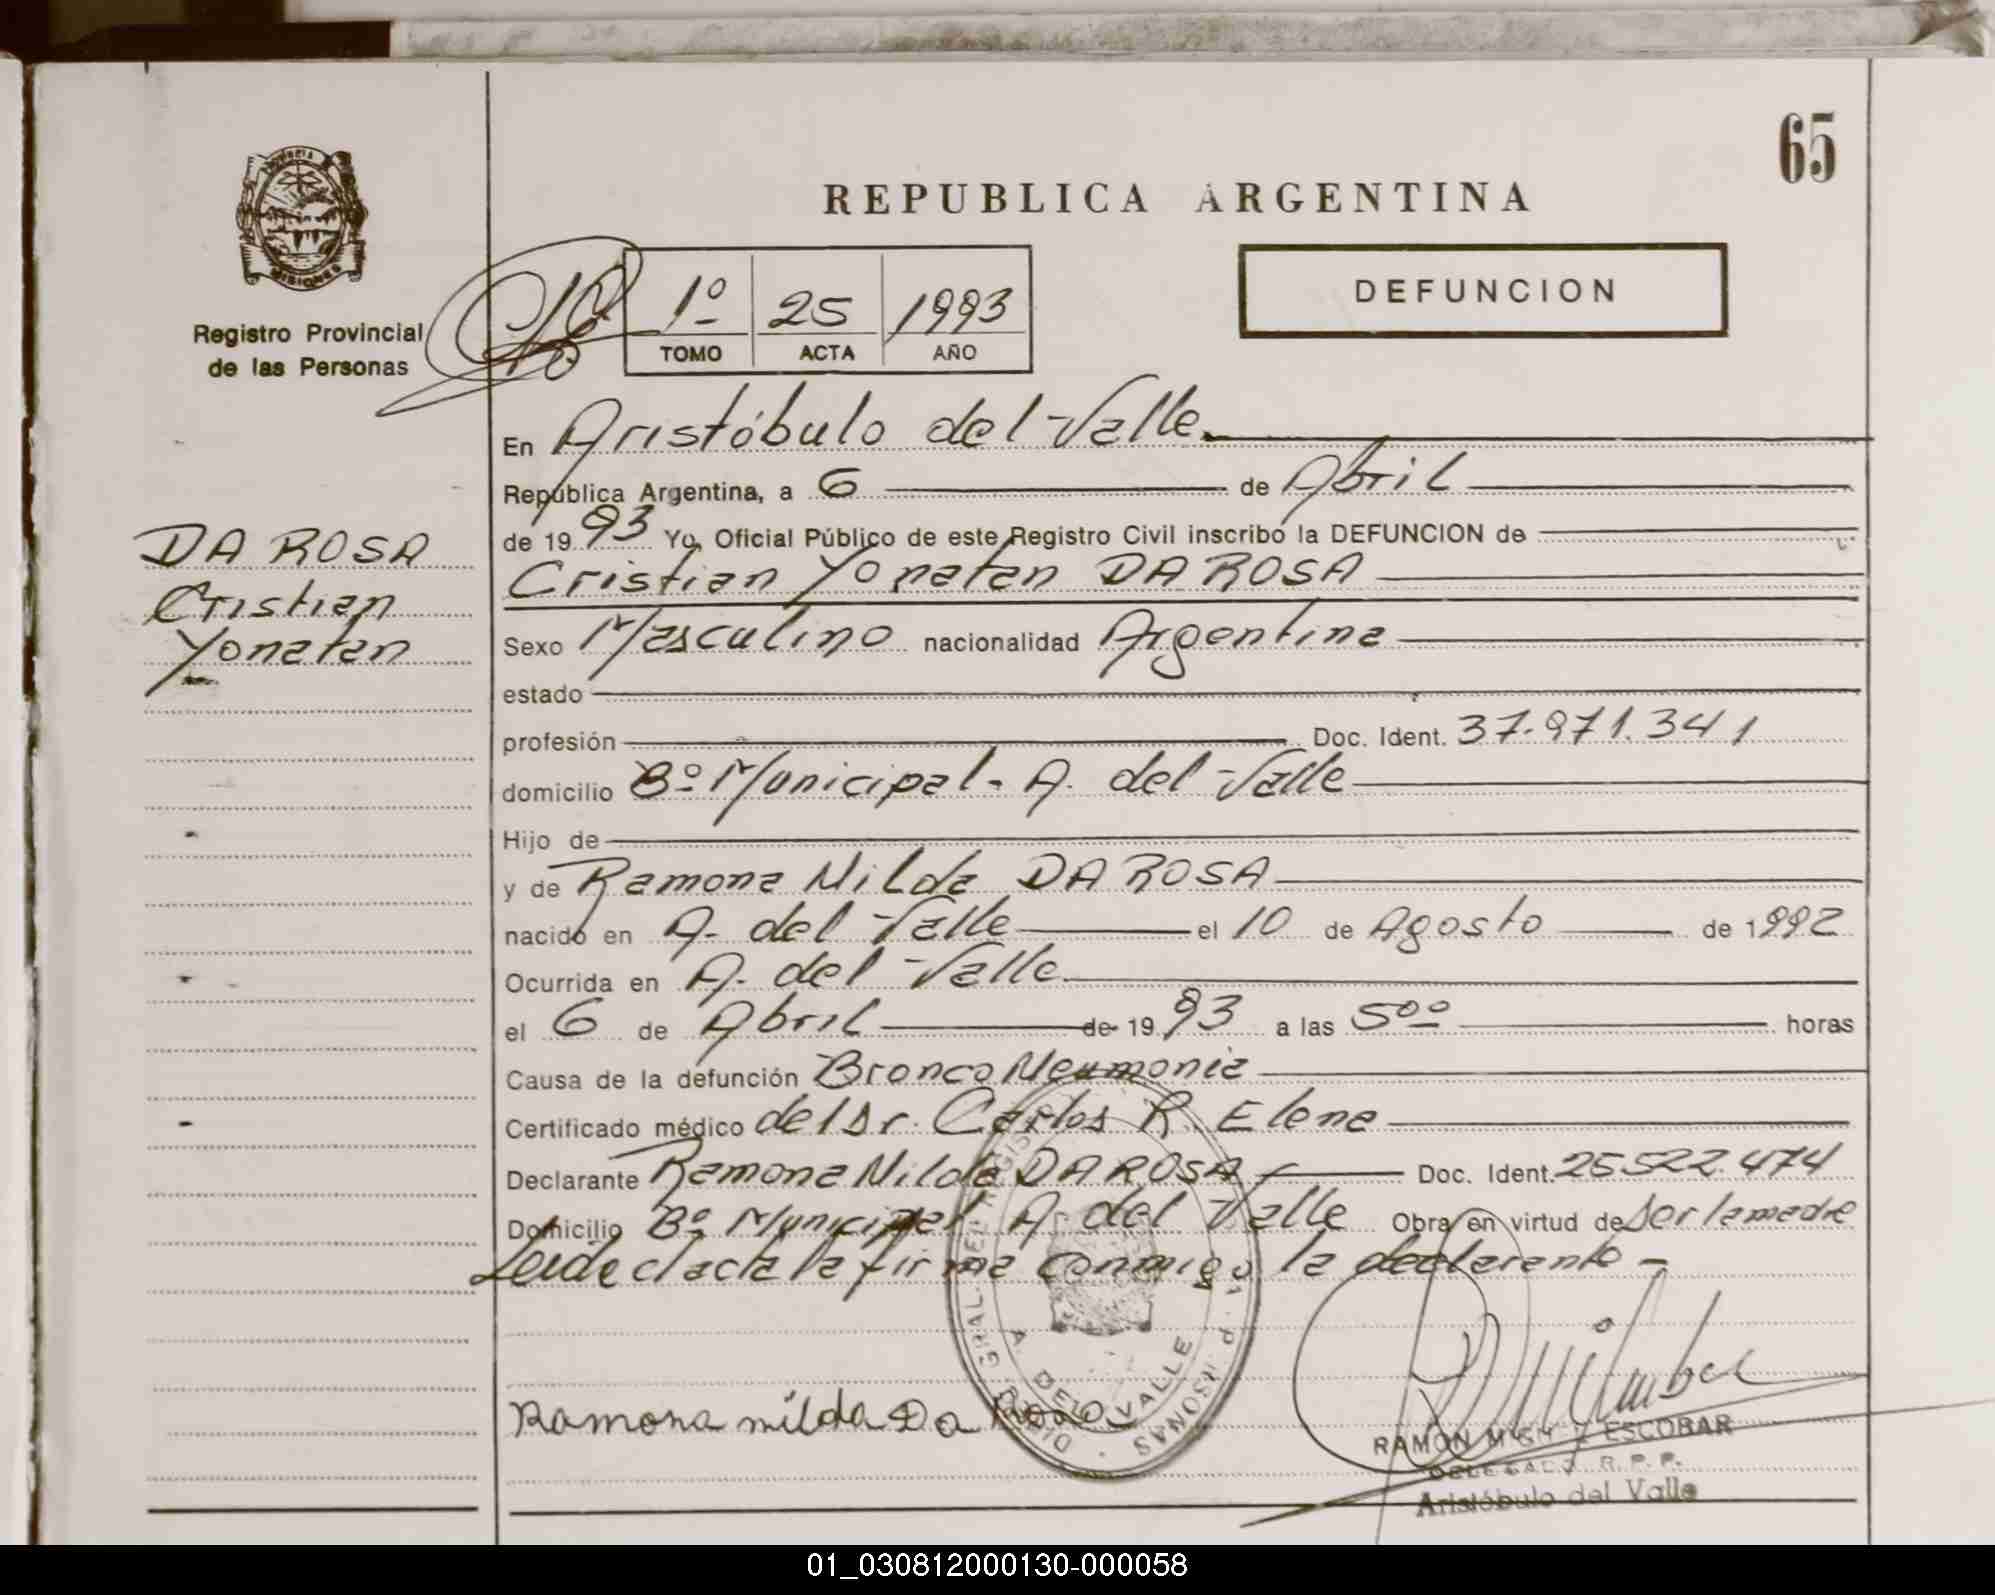 65
REPUBLICA ARGENTINA
PROVINCIA
MISIONES
Registro Provincial
de las Personas
1º 25 1993
TOMO ACTA AÑO
DEFUNCION
DA ROSA
Cristian
Yonatan
En Aristóbulo del Valle
República Argentina, a 6 de Abril
de 1993 Yo, Oficial Público de este Registro Civil inscribo la DEFUNCION de
Cristian Yonatan DA ROSA
Sexo Masculino nacionalidad Argentina
estado
profesión Doc. Ident. 37.971.341
domicilio Bº Municipal - A. del Valle
Hijo de
y de Ramona Nilda DA ROSA
nacido en A. del Valle el 10 de Agosto de 1992
Ocurrida en A. del Valle
el 6 de Abril de 1993 a las 5ºº horas
Causa de la defunción Bronco Neumonia
Certificado médico del Dr. Carlos R. Elena
Declarante Ramona Nilda DA ROSA Doc. Ident. 25522.474
Domicilio Bº Municipal A. del Valle Obra en virtud de ser la madre
Leida el acta la firma conmigo la declarante -
A. DEL VALLE
Ramona nilda Da Rosa
RAMON ESCOBAR
DELEGADO R. P. P.
Aristóbulo del Valle
01_030812000130-000058